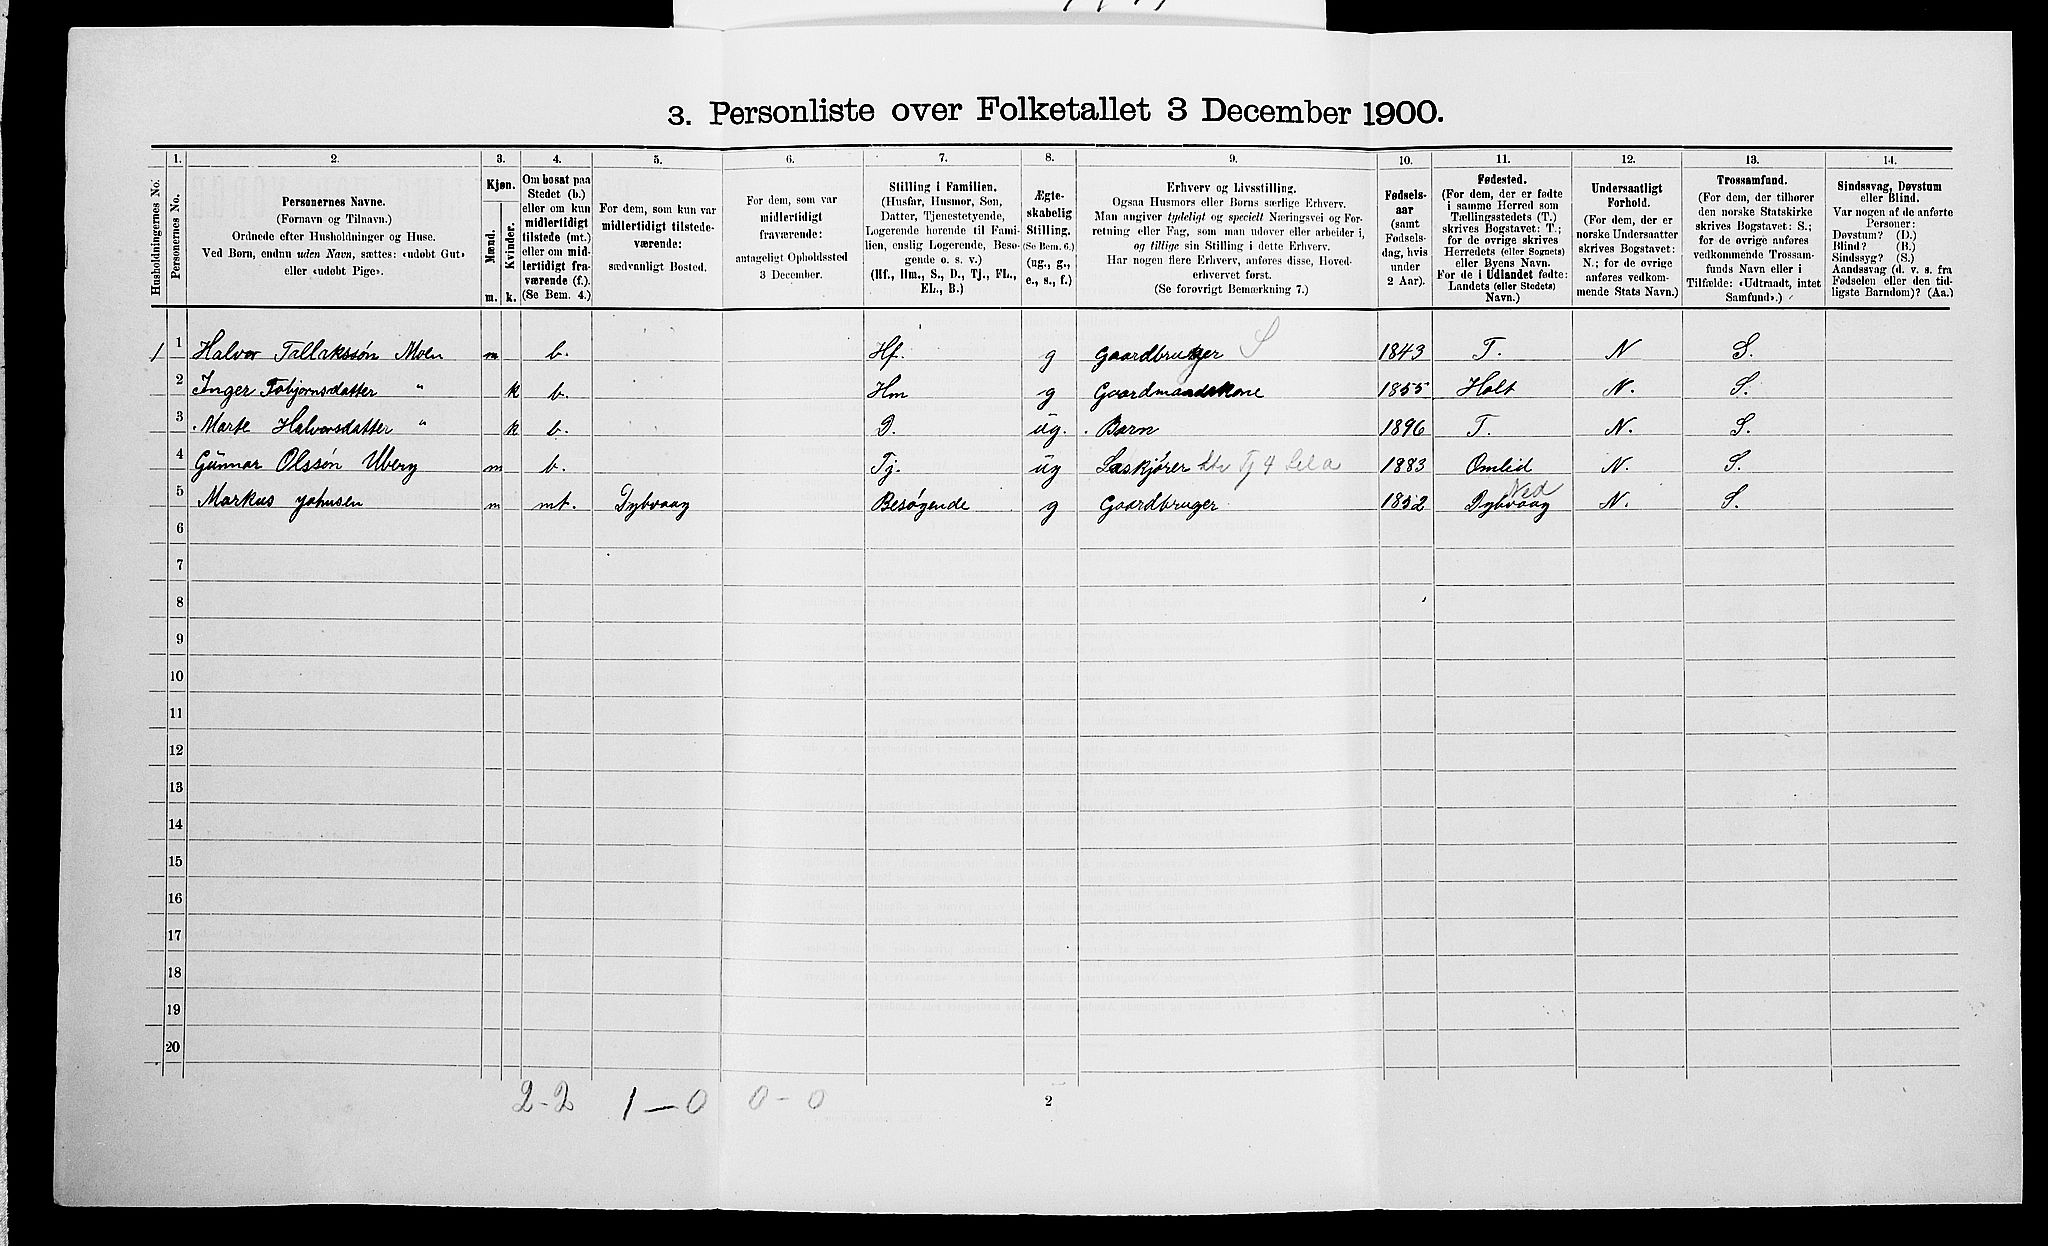 3. Personliste over Folketallet 3 December 1900.
1. 2. 3. 4. 5. 6. 7. 8. 9. 10. 11. 12. 13. 14.
Husholdningernes No.
Personernes No.
Personernes Navne.
(Fornavn og Tilnavn.)
Ordnede efter Husholdninger og Huse.
Ved Børn, endnu uden Navn, sættes: «udøbt Gut»
eller «udøbt Pige».
Kjøn.
Mænd.
Kvinder.
m. k.
Om bosat paa
Stedet (b.)
eller om kun
midlertidigt
tilstede (mt.)
eller om mid-
lertidigt fra-
værende (f.).
(Se Bem. 4.)
For dem, som kun var
midlertidigt tilstede-
værende:
sædvanligt Bosted.
For dem, som var
midlertidigt
fraværende:
antageligt Opholdssted
3 December.
Stilling i Familien.
(Husfar, Husmor, Søn,
Datter, Tjenestetyende,
Logerende hørende til Fami-
lien, enslig Logerende, Besø-
gende o. s. v.)
(Hf., Hm., S., D., Tj., FL.,
EL., B.)
Ægte-
skabelig
Stilling.
(Se Bem. 6.)
(ug., g.,
e., s., f.)
Erhverv og Livsstilling.
Ogsaa Husmors eller Børns særlige Erhverv.
Man angiver tydeligt og specielt Næringsvei og For-
retning eller Fag, som man udøver eller arbeider i,
og tillige sin Stilling i dette Erhverv.
Har nogen flere Erhverv, anføres disse, Hoved-
erhvervet først.
(Se forøvrigt Bemærkning 7.)
Fødsels-
aar
(samt
Fødsels-
dag, hvis
under
2 Aar).
Fødested.
(For dem, der er fødte
i samme Herred som
Tællingsstedets (T.)
skrives Bogstavet: T.;
for de øvrige skrives
Herredets (eller Sognets)
eller Byens Navn.
For de i Udlandet fødte:
Landets (eller Stedets)
Navn.)
Undersaatligt
Forhold.
(For dem, der er
norske Undersaatter
skrives Bogstavet:
N.; for de øvrige
anføres vedkom-
mende Stats Navn.)
Trossamfund.
(For dem, der tilhører
den norske Statskirke
skrives Bogstavet: S.;
for de øvrige anføres
vedkommende Trossam-
funds Navn eller i
Tilfælde: «Udtraadt, intet
Samfund».)
Sindssvag, Døvstum
eller Blind.
Var nogen af de anførte
Personer:
Døvstum? (D.)
Blind? (B.)
Sindssyg? (S.)
Aandssvag (d. v. s. fra
Fødselen eller den tid-
ligste Barndom)? (Aa.)
1 1 Halvor Tallakssøn Moen m b. Hf. g Gaardbruger S 1843 T. N S.
2 Inger Tobjørnsdatter " k b. Hm g Gaardmandskone 1855 Holt N. S.
3 Marte Halvorsdatter " k b. D. ug. Barn 1896 T. N. S.
4 Gunnar Olssøn Uberg m b. Tj. ug Læskjører Tj 4 1883 Omlid N. S.
Ned
5 Markus Johnsen m mt. Dybvaag Besøgende g Gaardbruger 1852 Dybvaag N. S.
6
7
8
9
10
11
12
13
14
15
16
17
18
19
20
2-2 1-0 0-0 2